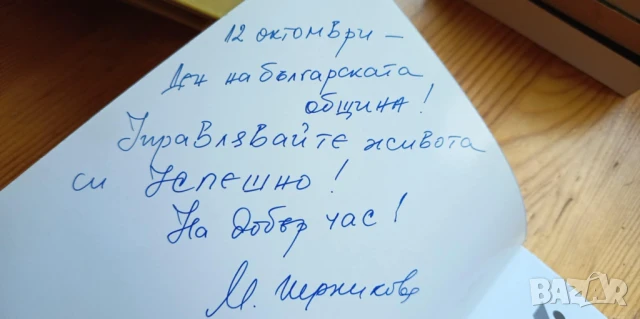 12 октомври –
Ден на българската
община!
Управлявайте живота
си Успешно!
На добър час!
М.
BAZAR